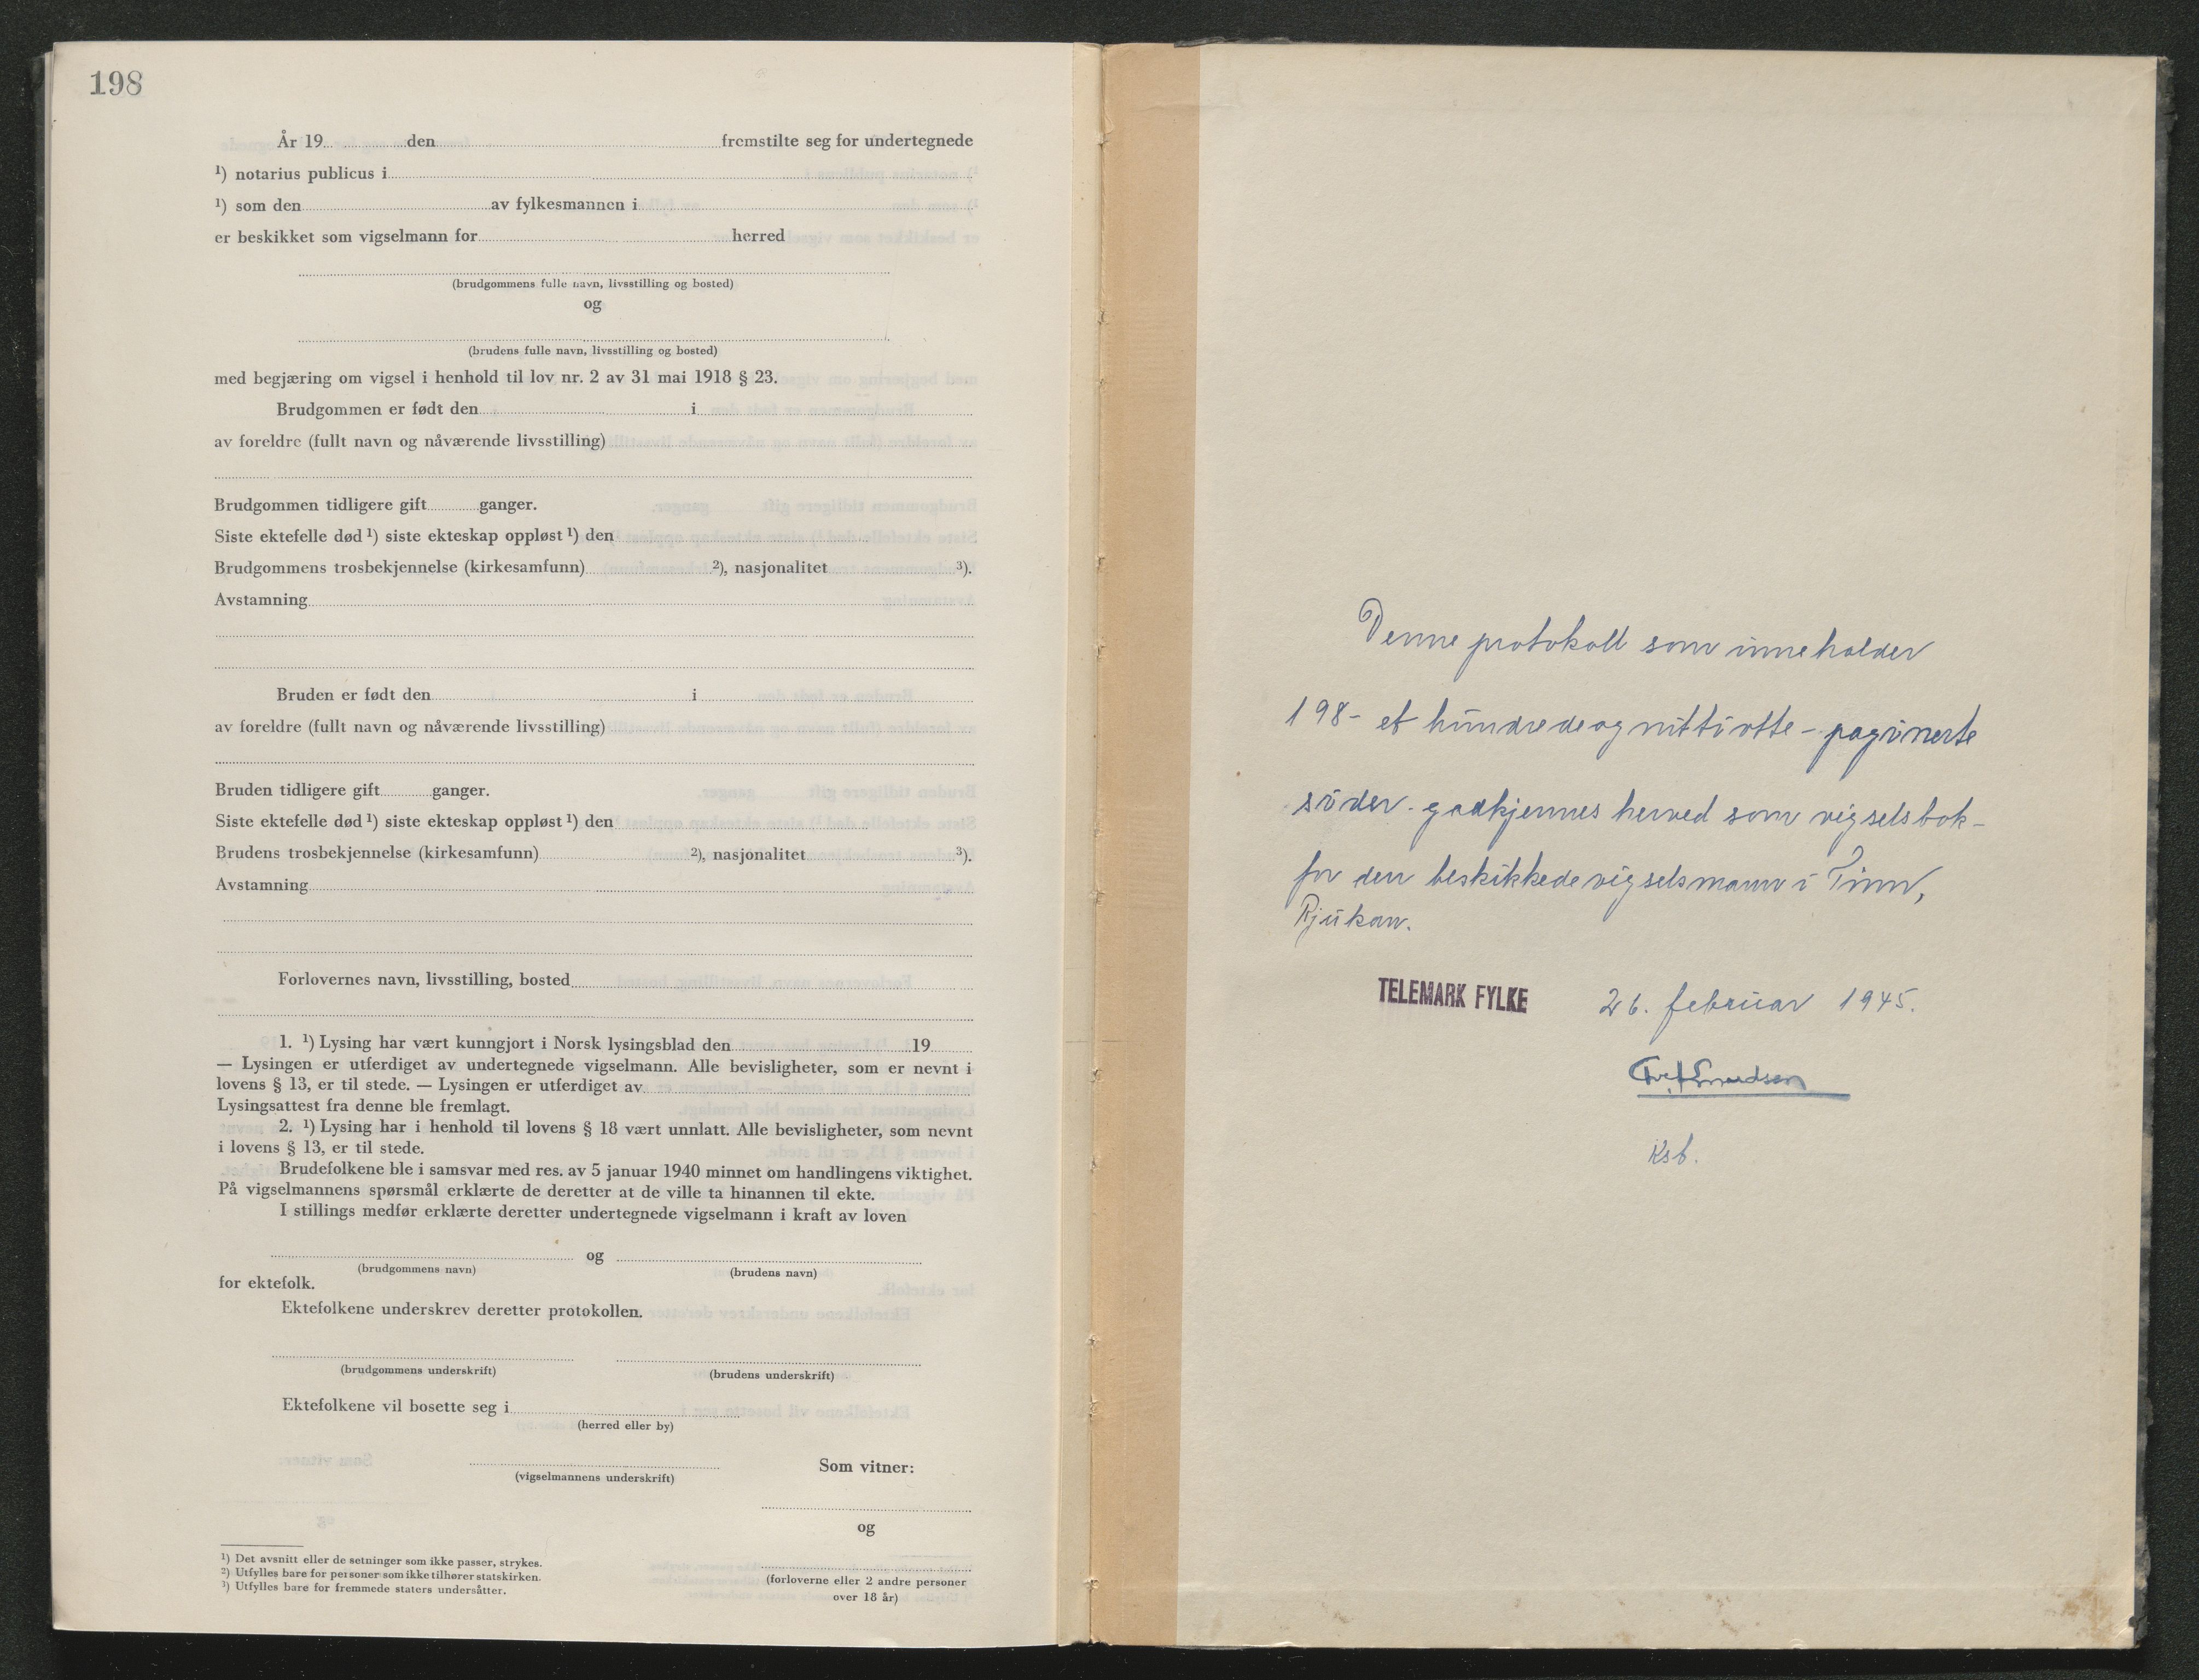 198
År 19 den fremstilte seg for undertegnede
¹) notarius publicus i
¹) som den av fylkesmannen i
er beskikket som vigselmann for herred
(brudgommens fulle navn, livsstilling og bosted)
og
(brudens fulle navn, livsstilling og bosted)
med begjæring om vigsel i henhold til lov nr. 2 av 31 mai 1918 § 23.
Brudgommen er født den i
av foreldre (fullt navn og nåværende livsstilling)
Brudgommen tidligere gift ganger.
Siste ektefelle død ¹) siste ekteskap oppløst ¹) den
Brudgommens trosbekjennelse (kirkesamfunn) ²), nasjonalitet ³).
Avstamning
Bruden er født den i
av foreldre (fullt navn og nåværende livsstilling)
Bruden tidligere gift ganger.
Siste ektefelle død ¹) siste ekteskap oppløst ¹) den
Brudens trosbekjennelse (kirkesamfunn) ²), nasjonalitet ³).
Avstamning
Forlovernes navn, livsstilling, bosted
1. ¹) Lysing har vært kunngjort i Norsk lysingsblad den 19
— Lysingen er utferdiget av undertegnede vigselmann. Alle bevisligheter, som er nevnt i
lovens § 13, er til stede. — Lysingen er utferdiget av
Lysingsattest fra denne ble fremlagt.
2. ¹) Lysing har i henhold til lovens § 18 vært unnlatt. Alle bevisligheter, som nevnt
i lovens § 13, er til stede.
Brudefolkene ble i samsvar med res. av 5 januar 1940 minnet om handlingens viktighet.
På vigselmannens spørsmål erklærte de deretter at de ville ta hinannen til ekte.
I stillings medfør erklærte deretter undertegnede vigselmann i kraft av loven
og
(brudgommens navn) (brudens navn)
for ektefolk.
Ektefolkene underskrev deretter protokollen.
(brudgommens underskrift) (brudens underskrift)
Ektefolkene vil bosette seg i
(herred eller by)
Som vitner:
(vigselmannens underskrift)
og
(forloverne eller 2 andre personer
over 18 år)
¹) Det avsnitt eller de setninger som ikke passer, strykes.
²) Utfylles bare for personer som ikke tilhører statskirken.
³) Utfylles bare for fremmede staters undersåtter.
Denne protokoll som inneholder
198 - et hundrede og nitti otte - paginerte
sider - godkjennes herved som vigselsbok -
for den beskikkede vigselsmann i Tinn,
Rjukan.
TELEMARK FYLKE 26. februar 1945.
Ksb.